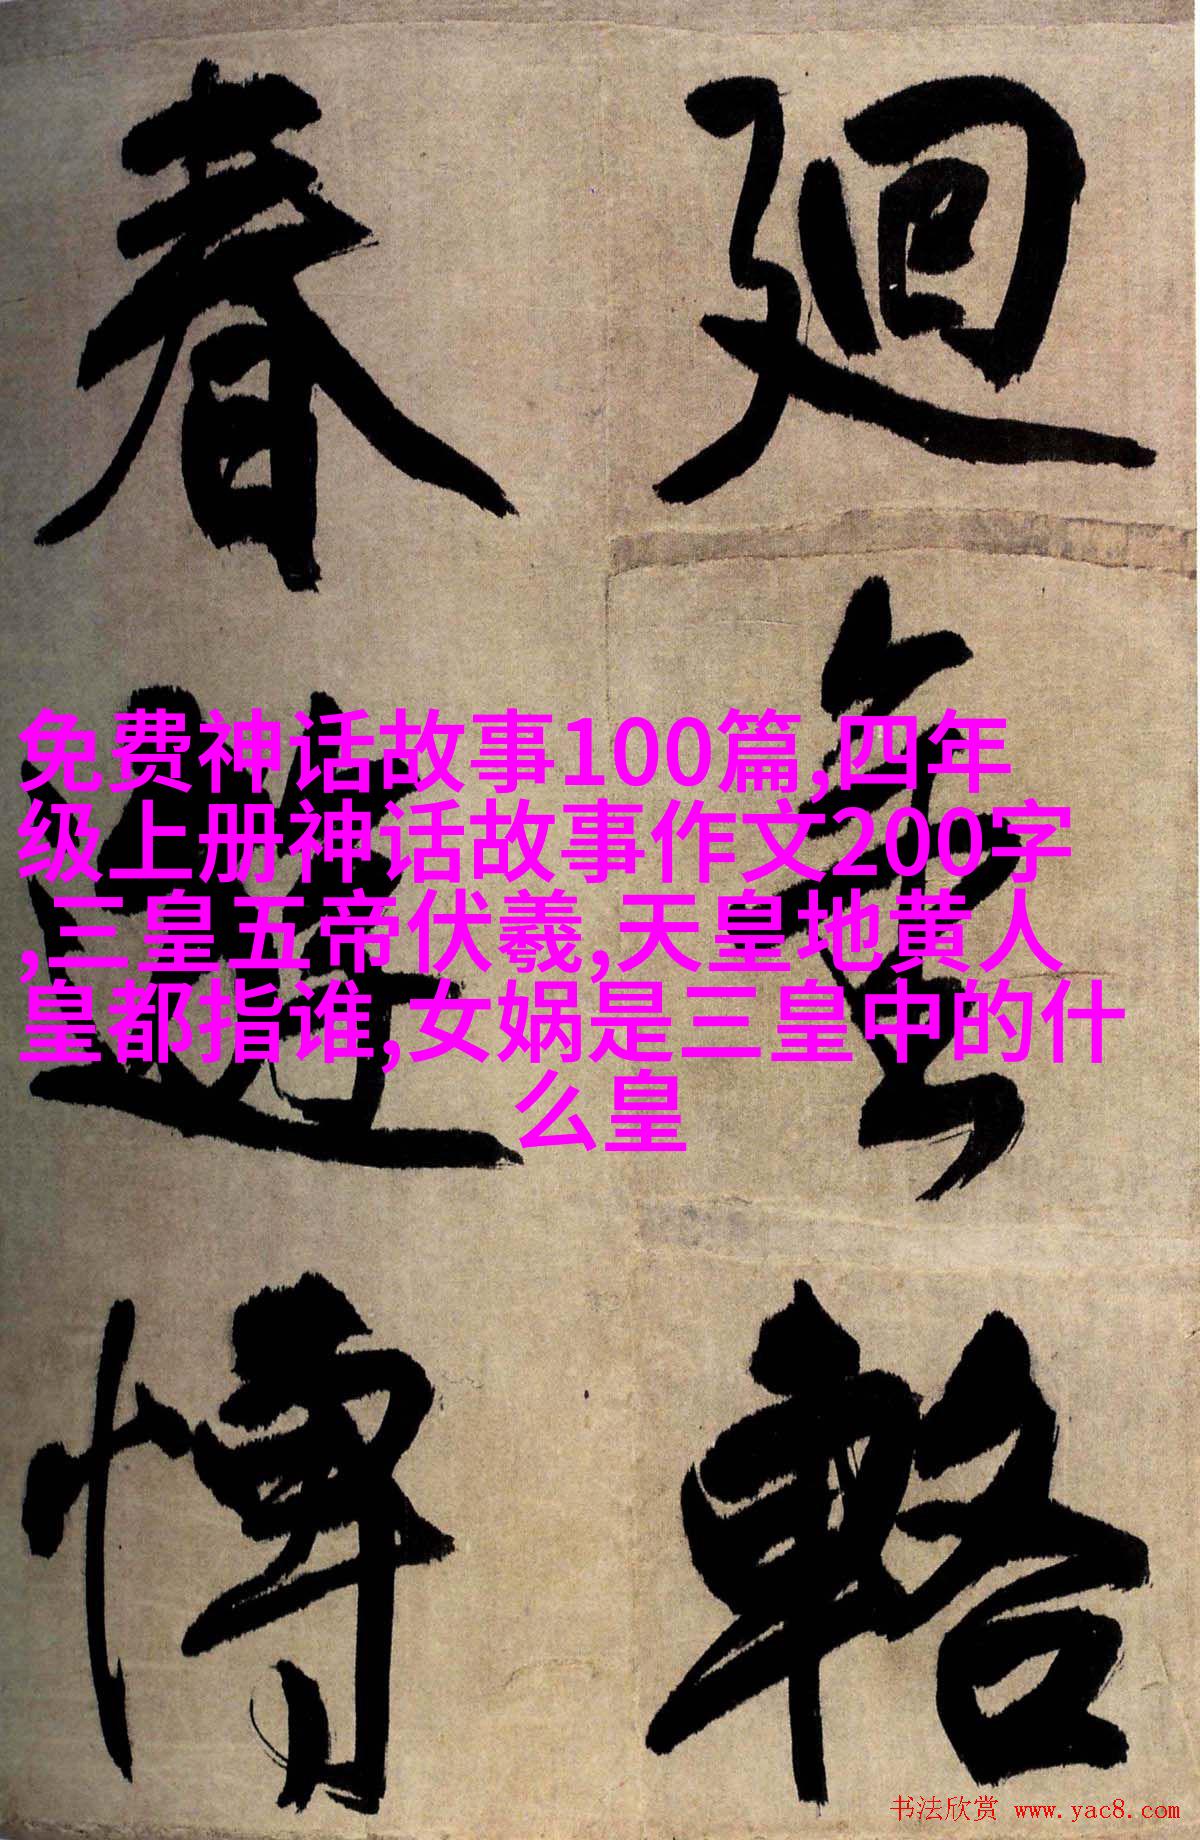 廻
春
免费神话故事100篇,四年
级上册神话故事作文200字
,三皇五帝伏羲,天皇地黄人
皇都指谁,女娲是三皇中的什
么皇
輅
博
书法欣赏 www.yac8.com